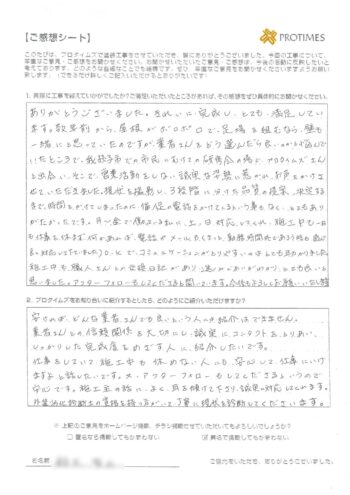 【ご感想シート】
PROTIMES
このたびは、プロタイムズで塗装工事をさせていただき、誠にありがとうございました。今回の工事について、
率直なご意見・ご感想をお聞かせください。お聞かせいただいたご意見・ご感想は、今後の活動に反映したいと
考えております。どのような些細なことでも結構です。ぜひ、率直なご意見をお聞かせくださいますようお願い
致します。（できるだけ詳しくご記入いただけるとありがたいです）
1. 実際に工事を終えていかがでしたか？ご満足いただいたところがあれば、その感想をぜひ具体的にお聞かせください。
ありがとうございました。きれいに完成し、とても満足してい
ます。数年前から、屋根がボロボロで、足場を組むなら、壁も
一緒にと思っていたのですが、業者さんをどう選んだら良いかと悩んで
いたところで、我孫子市での市民にむけての研修会の場で、プロタイムズさん
と出会い、そこで、営業活動をしない誠実な姿勢に惹かれ、お声をかけさ
せていただきました。現状を撮影し、3段階に分けた品質の提案、決定する
まで、時間をかけてしまったのに、催促の電話をかけてくるという事もなく、とてもあり
がたかったです。月〜金で働いている私に、土、日対応してくれ、施工中も一日
も仕事を休まず、何かあれば、電話やメールも
対応して下さいました
コミュニケーションがとりずらい
施工中も、職人さんとの交換日記があり
ました。アフターフォローもしてくださるとのことです。今後も宜しくお願いいたします。
2. プロタイムズをお知り合いに紹介するとしたら、どのようにご紹介いただけますか？
安ければ、どんな業者さんでも良いという人には紹介はできません。
業者さんとの信頼関係を大切にし、誠実にコンタクトをとりあい、
しっかりした完成度をめざす人に、紹介したいです。
仕事をしていて、施工中も休めない人にも、安心して、仕事にいけ
ますよと話したいです。又、アフターフォローもしてくださるというので
安心です。施工金の話に、よく耳を傾けて下さり、誠実に対応してくれます。
外装劣化診断士の資格を持つ方がいて、丁寧に現状を診断してくださいます。
※ 上記のご意見をホームページ掲載、チラシ掲載させていただいてもよろしいでしょうか？
□ 匿名なら掲載してもかまわない
☑ 実名で掲載してもかまわない
氏名
ご協力をいただき、ありがとうございました。